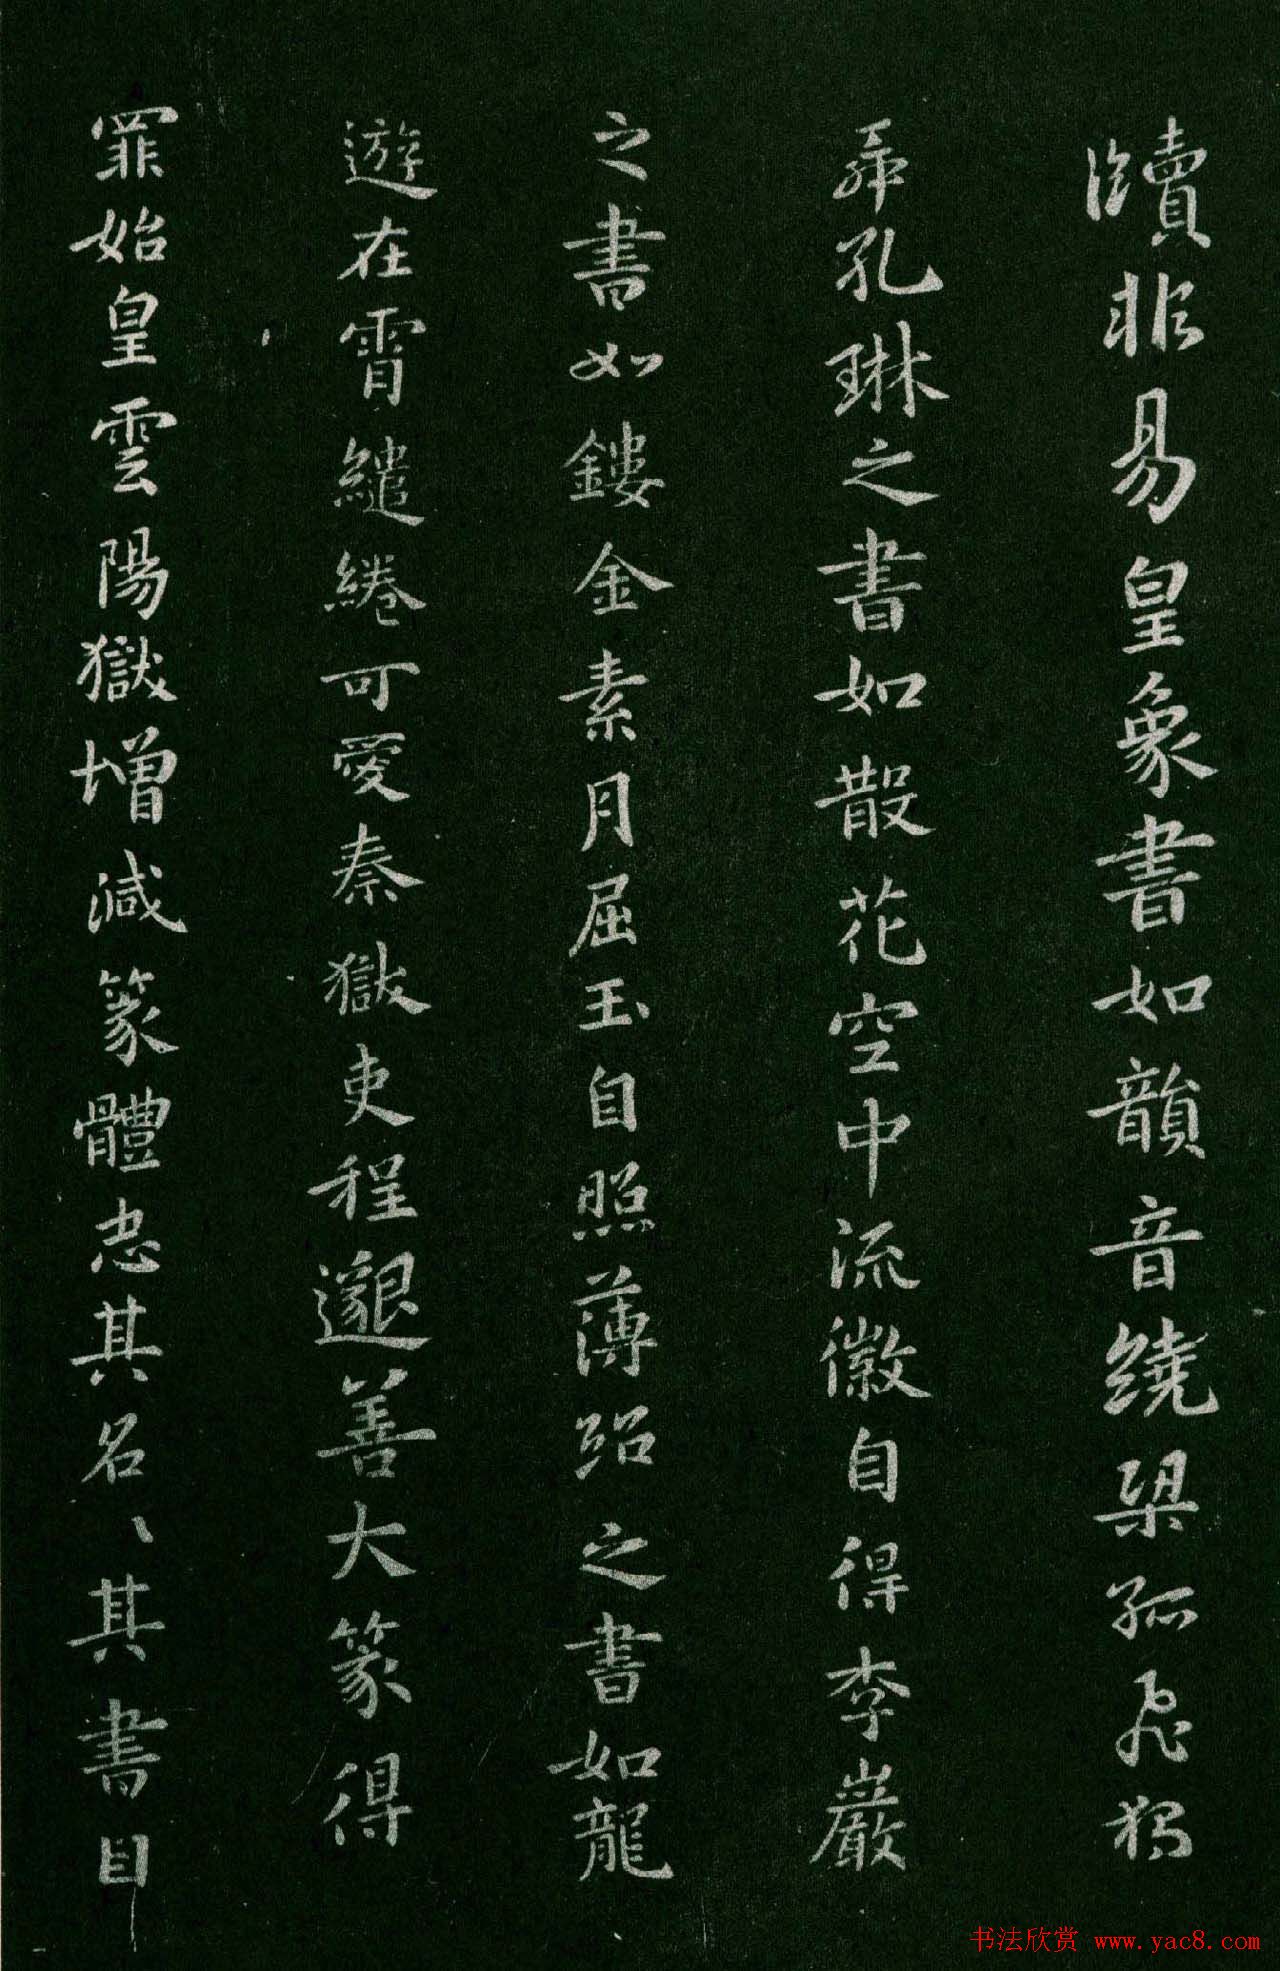 牘非易皇象書如韻音繞梁孤飛獨
舞孔琳之書如散花空中流徽自得李巖
之書如鏤金素月屈玉自照薄紹之書如龍
遊在霄繾綣可愛秦獄吏程邈善大篆得
罪始皇雲陽獄增減篆體忠其名、其書曰
书法欣赏 www.yac8.com